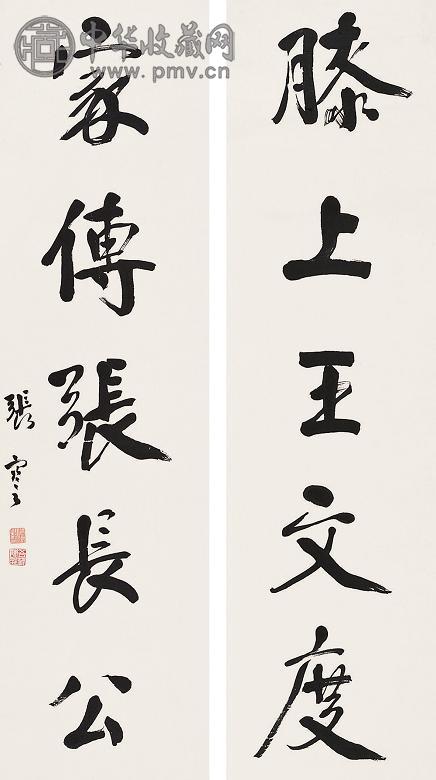 膝上王文度
家傳張長公
張寒
中华收藏网
www.pmv.cn